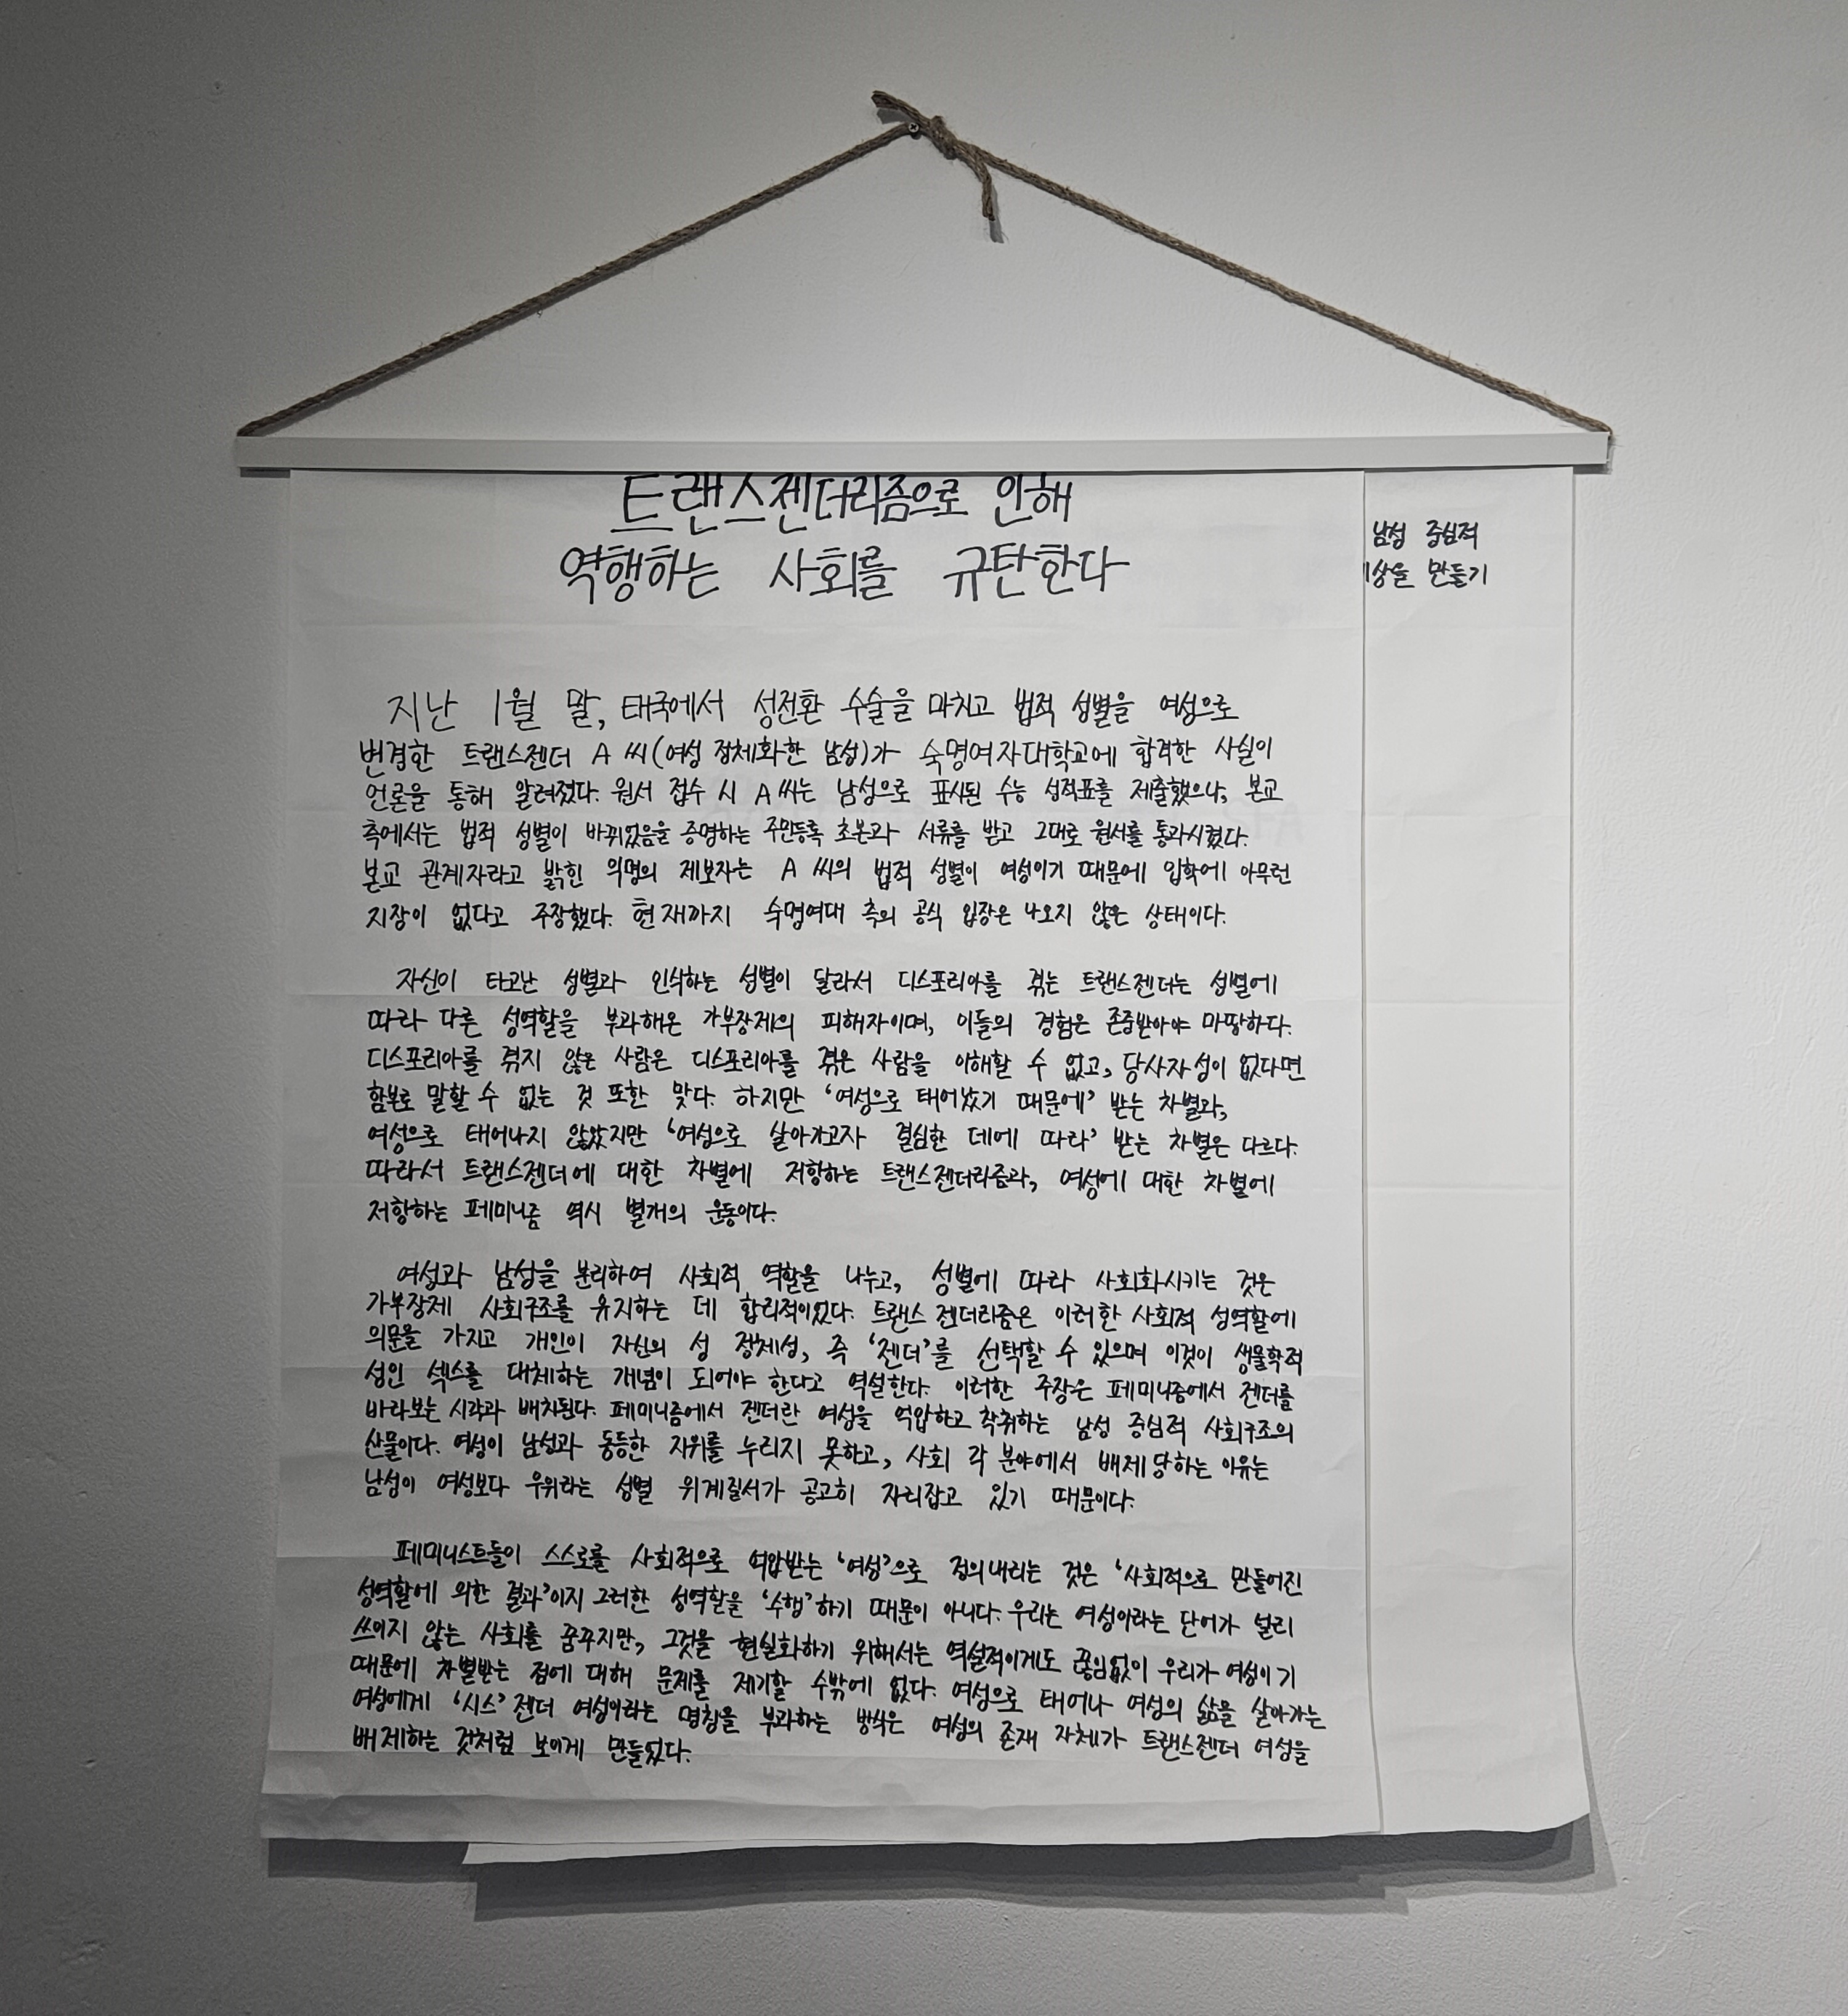 트랜스젠더리즘으로 인해
역행하는 사회를 규탄한다
지난 1월 말, 태국에서 성전환 수술을 마치고 법적 성별을 여성으로
변경한 트랜스젠더 A 씨(여성 정체화한 남성)가 숙명여자대학교에 합격한 사실이
언론을 통해 알려졌다. 원서 접수 시 A 씨는 남성으로 표시된 수능 성적표를 제출했으나, 본교
측에서는 법적 성별이 바뀌었음을 증명하는 주민등록 초본과 서류를 받고 그대로 원서를 통과시켰다.
본교 관계자라고 밝힌 익명의 제보자는 A 씨의 법적 성별이 여성이기 때문에 입학에 아무런
지장이 없다고 주장했다. 현재까지 숙명여대 측의 공식 입장은 나오지 않은 상태이다.
자신이 타고난 성별과 인식하는 성별이 달라서 디스포리아를 겪는 트랜스젠더는 성별에
따라 다른 성역할을 부과해온 가부장제의 피해자이며, 이들의 경험은 존중받아야 마땅하다.
디스포리아를 겪지 않은 사람은 디스포리아를 겪은 사람을 이해할 수 없고, 당사자성이 없다면
함부로 말할 수 없는 것 또한 맞다. 하지만 '여성으로 태어났기 때문에' 받는 차별과,
여성으로 태어나지 않았지만 '여성으로 살아가고자 결심한 데에 따라' 받는 차별은 다르다.
따라서 트랜스젠더에 대한 차별에 저항하는 트랜스젠더리즘과, 여성에 대한 차별에
저항하는 페미니즘 역시 별개의 운동이다.
여성과 남성을 분리하여 사회적 역할을 나누고, 성별에 따라 사회화시키는 것은
가부장제 사회구조를 유지하는 데 합리적이었다. 트랜스젠더리즘은 이러한 사회적 성역할에
의문을 가지고 개인이 자신의 성 정체성, 즉 '젠더'를 선택할 수 있으며 이것이 생물학적
성인 섹스를 대체하는 개념이 되어야 한다고 역설한다. 이러한 주장은 페미니즘에서 젠더를
바라보는 시각과 배치된다. 페미니즘에서 젠더란 여성을 억압하고 착취하는 남성 중심적 사회구조의
산물이다. 여성이 남성과 동등한 지위를 누리지 못하고, 사회 각 분야에서 배제당하는 이유는
남성이 여성보다 우위라는 성별 위계질서가 공고히 자리잡고 있기 때문이다.
페미니스트들이 스스로를 사회적으로 억압받는 '여성'으로 정의내리는 것은 '사회적으로 만들어진
성역할에 의한 결과'이지 그러한 성역할을 '수행'하기 때문이 아니다. 우리는 여성이라는 단어가 널리
쓰이지 않는 사회를 꿈꾸지만, 그것을 현실화하기 위해서는 역설적이게도 끊임없이 우리가 여성이기
때문에 차별받는 점에 대해 문제를 제기할 수밖에 없다. 여성으로 태어나 여성의 삶을 살아가는
여성에게 '시스'젠더 여성이라는 명칭을 부과하는 방식은 여성의 존재 자체가 트랜스젠더 여성을
배제하는 것처럼 보이게 만들었다.
남성 중심적
만들기